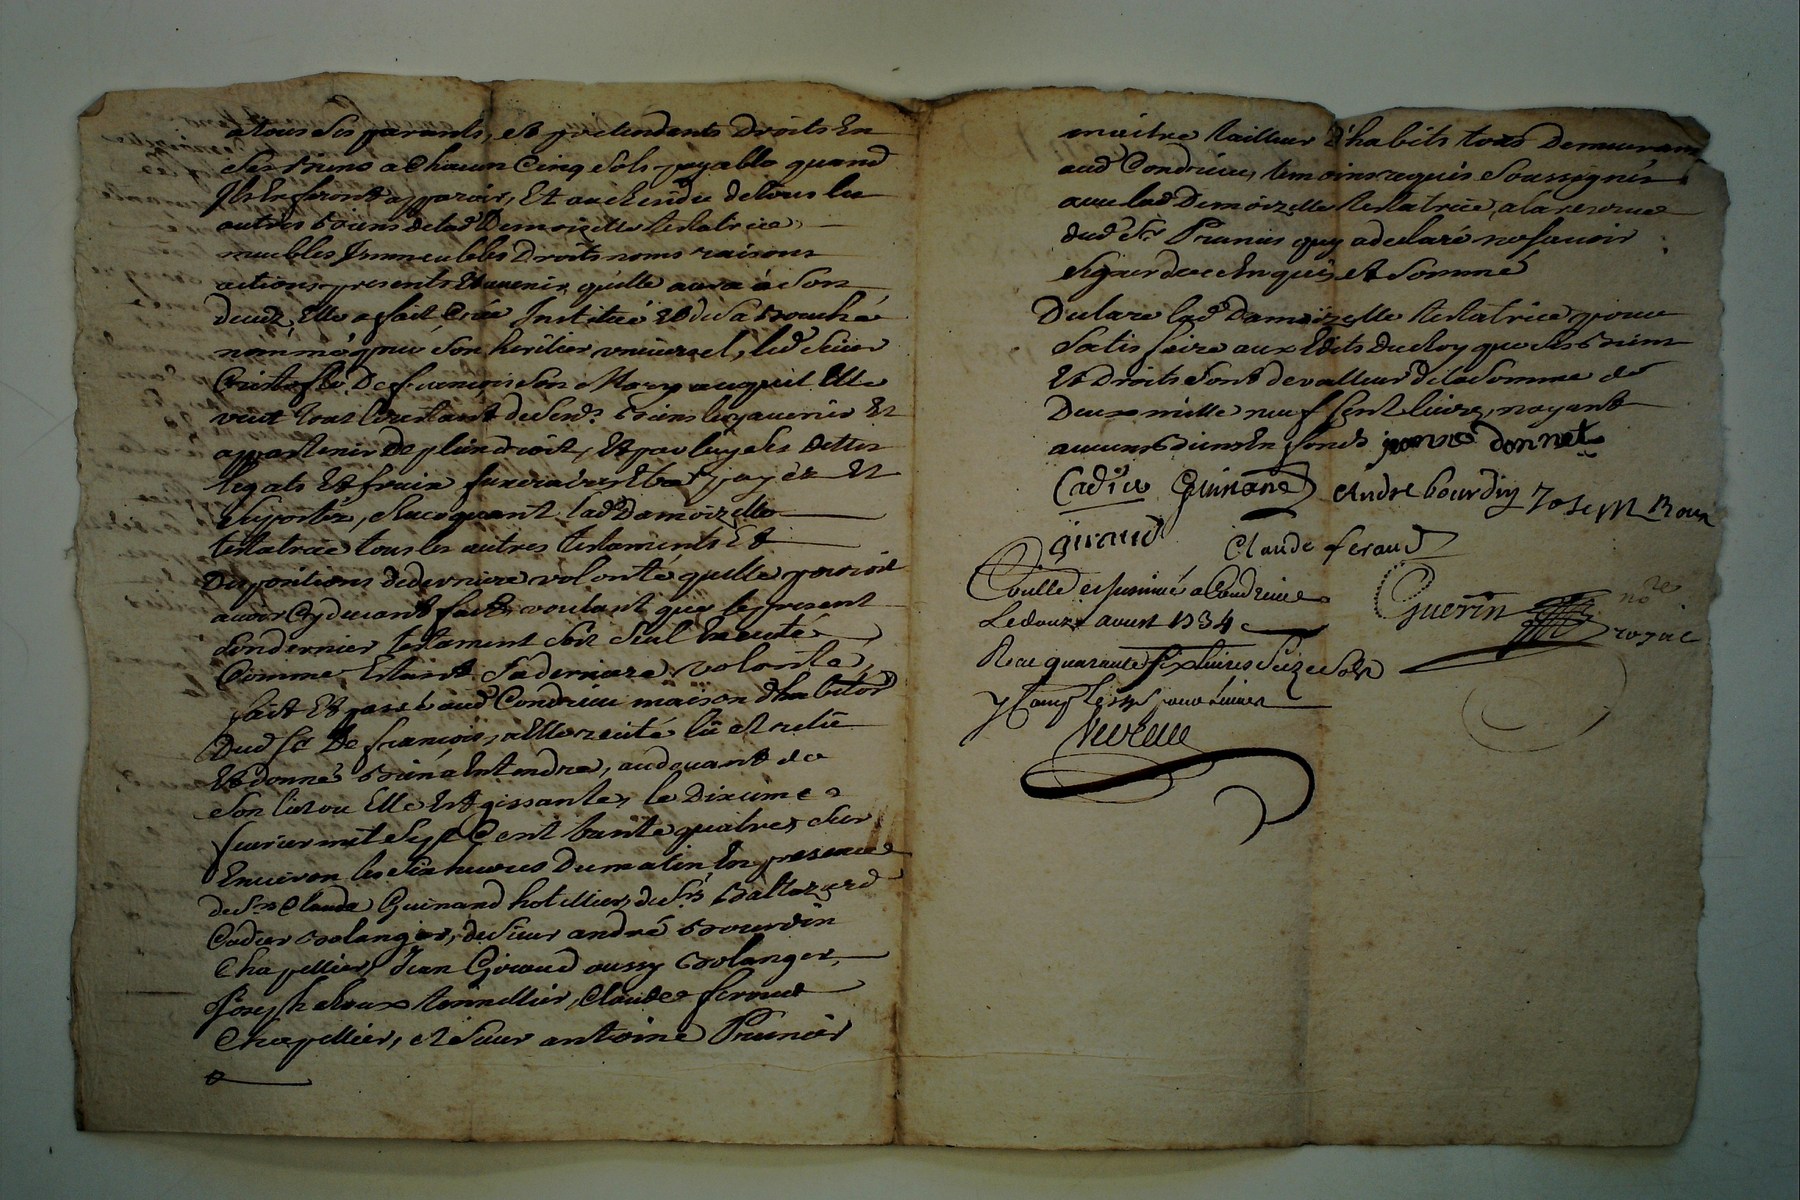 a tous ses parants, et pretendants droits en
ses biens a chacun cinq sols payable quand
Ils en feront apparoir, Et au residu de tous les
autres biens de lad Demoizelle testatrice
meubles Immeubles Droits noms raisons
actions presents et avenir quelle aura à son
deced, Elle a fait Créé Institué et de sa bouche
nommé pour son heritier universel, led sieur
De francois son Mary auquel Elle
veut tout le restant de sesd biens luy avenir et
appartenir de plein droit, et par luy ses dettes
legats et fraix funeraires Estre payés et
suportés, Revoquant lad Damoizelle
testatrice tous les autres testaments Et
Dispositions de derniere volonté quelle pourroit
avoir cy devant fait voulant que le present
son dernier testament soit seul Executé
Comme Estant sa derniere volonté,
fait et passé aud Condrieu maison d'habitaon
Dud sr De francois, a Elle recité lû et relû
Et donné bien a Entendre, au devant de
son lit ou Elle Est gissante, le Dixieme
fevrier mil sept Cent trente quatre, sur
Environ les six heures du matin, En presence
de sr Claude Guinand hotellier, de sr Baltazard
Cadier bolanger, de sieur andré bourdin
Chapellier, Jean Giraud aussy bolanger,
Joseph Roux tonnellier, Claude feraud
Chapellier, et sieur antoine Prunier
maitre tailleur d'habits tous Demeurant
aud Condrieu, temoins requis Soussignés
avec lad Demoizelle testatrice, a la reserve
dud sr Prunier quy a declaré ne savoir
signer de ce Enquis et sommé
Declare lad Damoizelle testatrice pour
satisfaire aux Edits du Roy que ses biens
et Droits sont de valleur de la somme de
Deux mille neuf Cent livres, nayant
aucuns biens En fonds jeanne donnet
Cadier Guinand Andre bourdin Joseph Roux
giraud Claude feraud
Controllé et insinué a Condrieu Guerin nore
Le douze avril 1734 royal
Recu quarante six livres seize sols